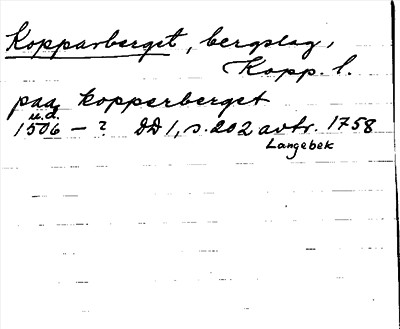 Kopparberget, bergslag,
Kopp. l.
paa kopperberget
u.d.
1506 - ? DD 1, s. 202 avtr. 1758
Langebek